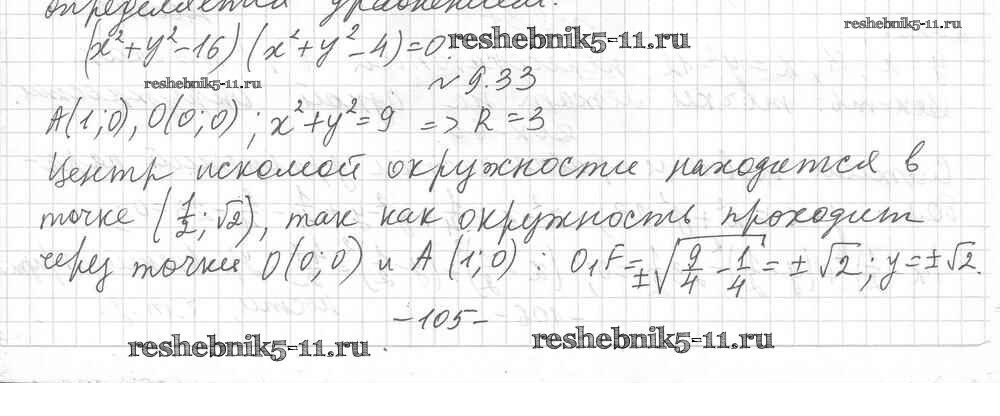 определяется уравнением:
reshebnik5-11.ru
(x²+y²-16)(x²+y²-4)=0. reshebnik5-11.ru
reshebnik5-11.ru
№ 9.33
A(1;0), O(0;0); x²+y²=9 => R=3
Центр искомой окружности находится в
точке (1/2; √2), так как окружность проходит
через точки O(0;0) и A(1;0): O₁F=±√(9/4-1/4)=±√2; y=±√2.
-105-
reshebnik5-11.ru reshebnik5-11.ru